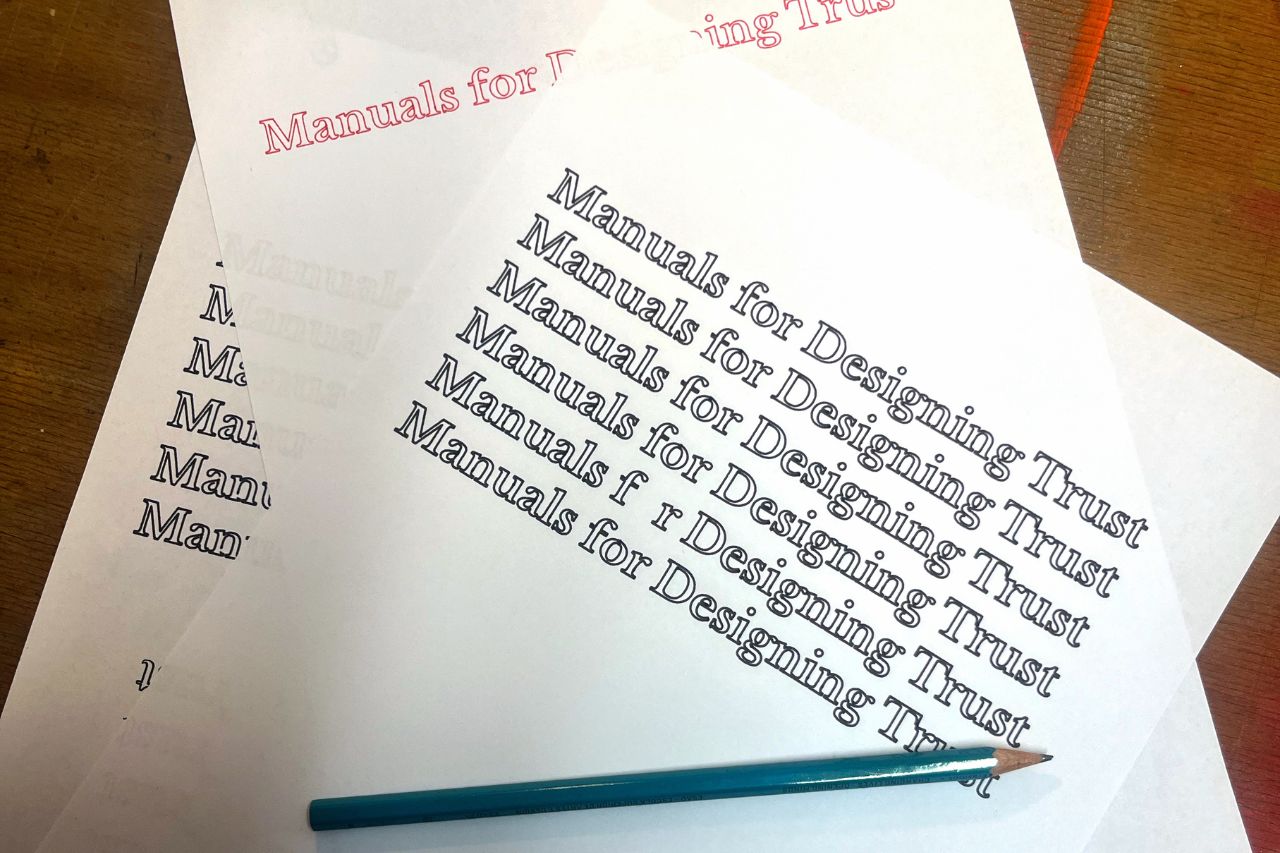 Manuals for D ing Trus
Manuals for Designing Trust
Manuals for Designing Trust
Manuals for Designing Trust
Manuals for Designing Trust
Manuals f r Designing Trust
Manuals for Designing Trust
M
Ma
Man
Manu
Man